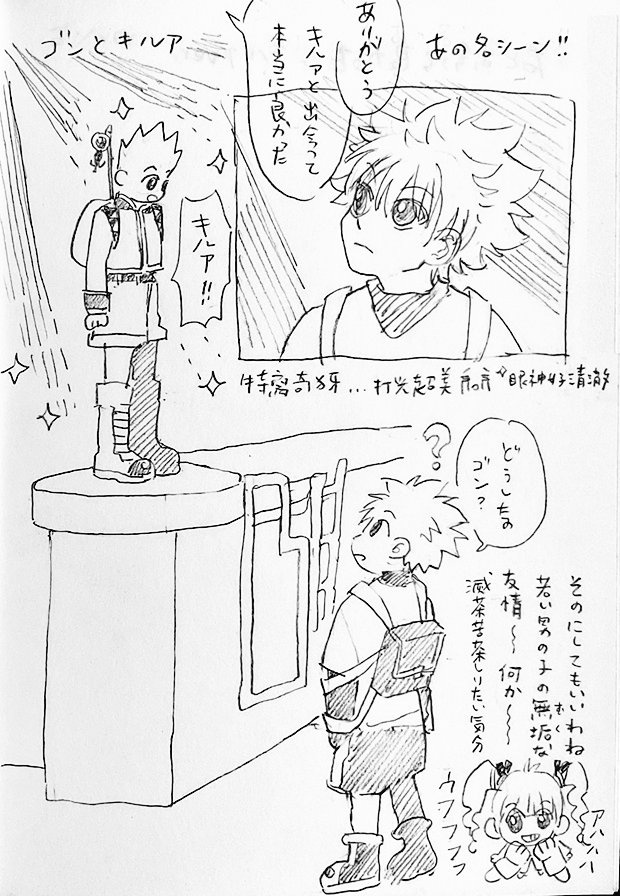 ゴンとキルア
あの名シーン!!
ありがとう
キルアと出会って
本当に良かった
キルア!!
打光超美
眼神好清澈
?
どうしたの
ゴン?
そのにしてもいいわね
若い男の子の無垢な
むく
友情～～何か～～
滅茶苦茶しりたい気分
ウフフフフ
アハハハ